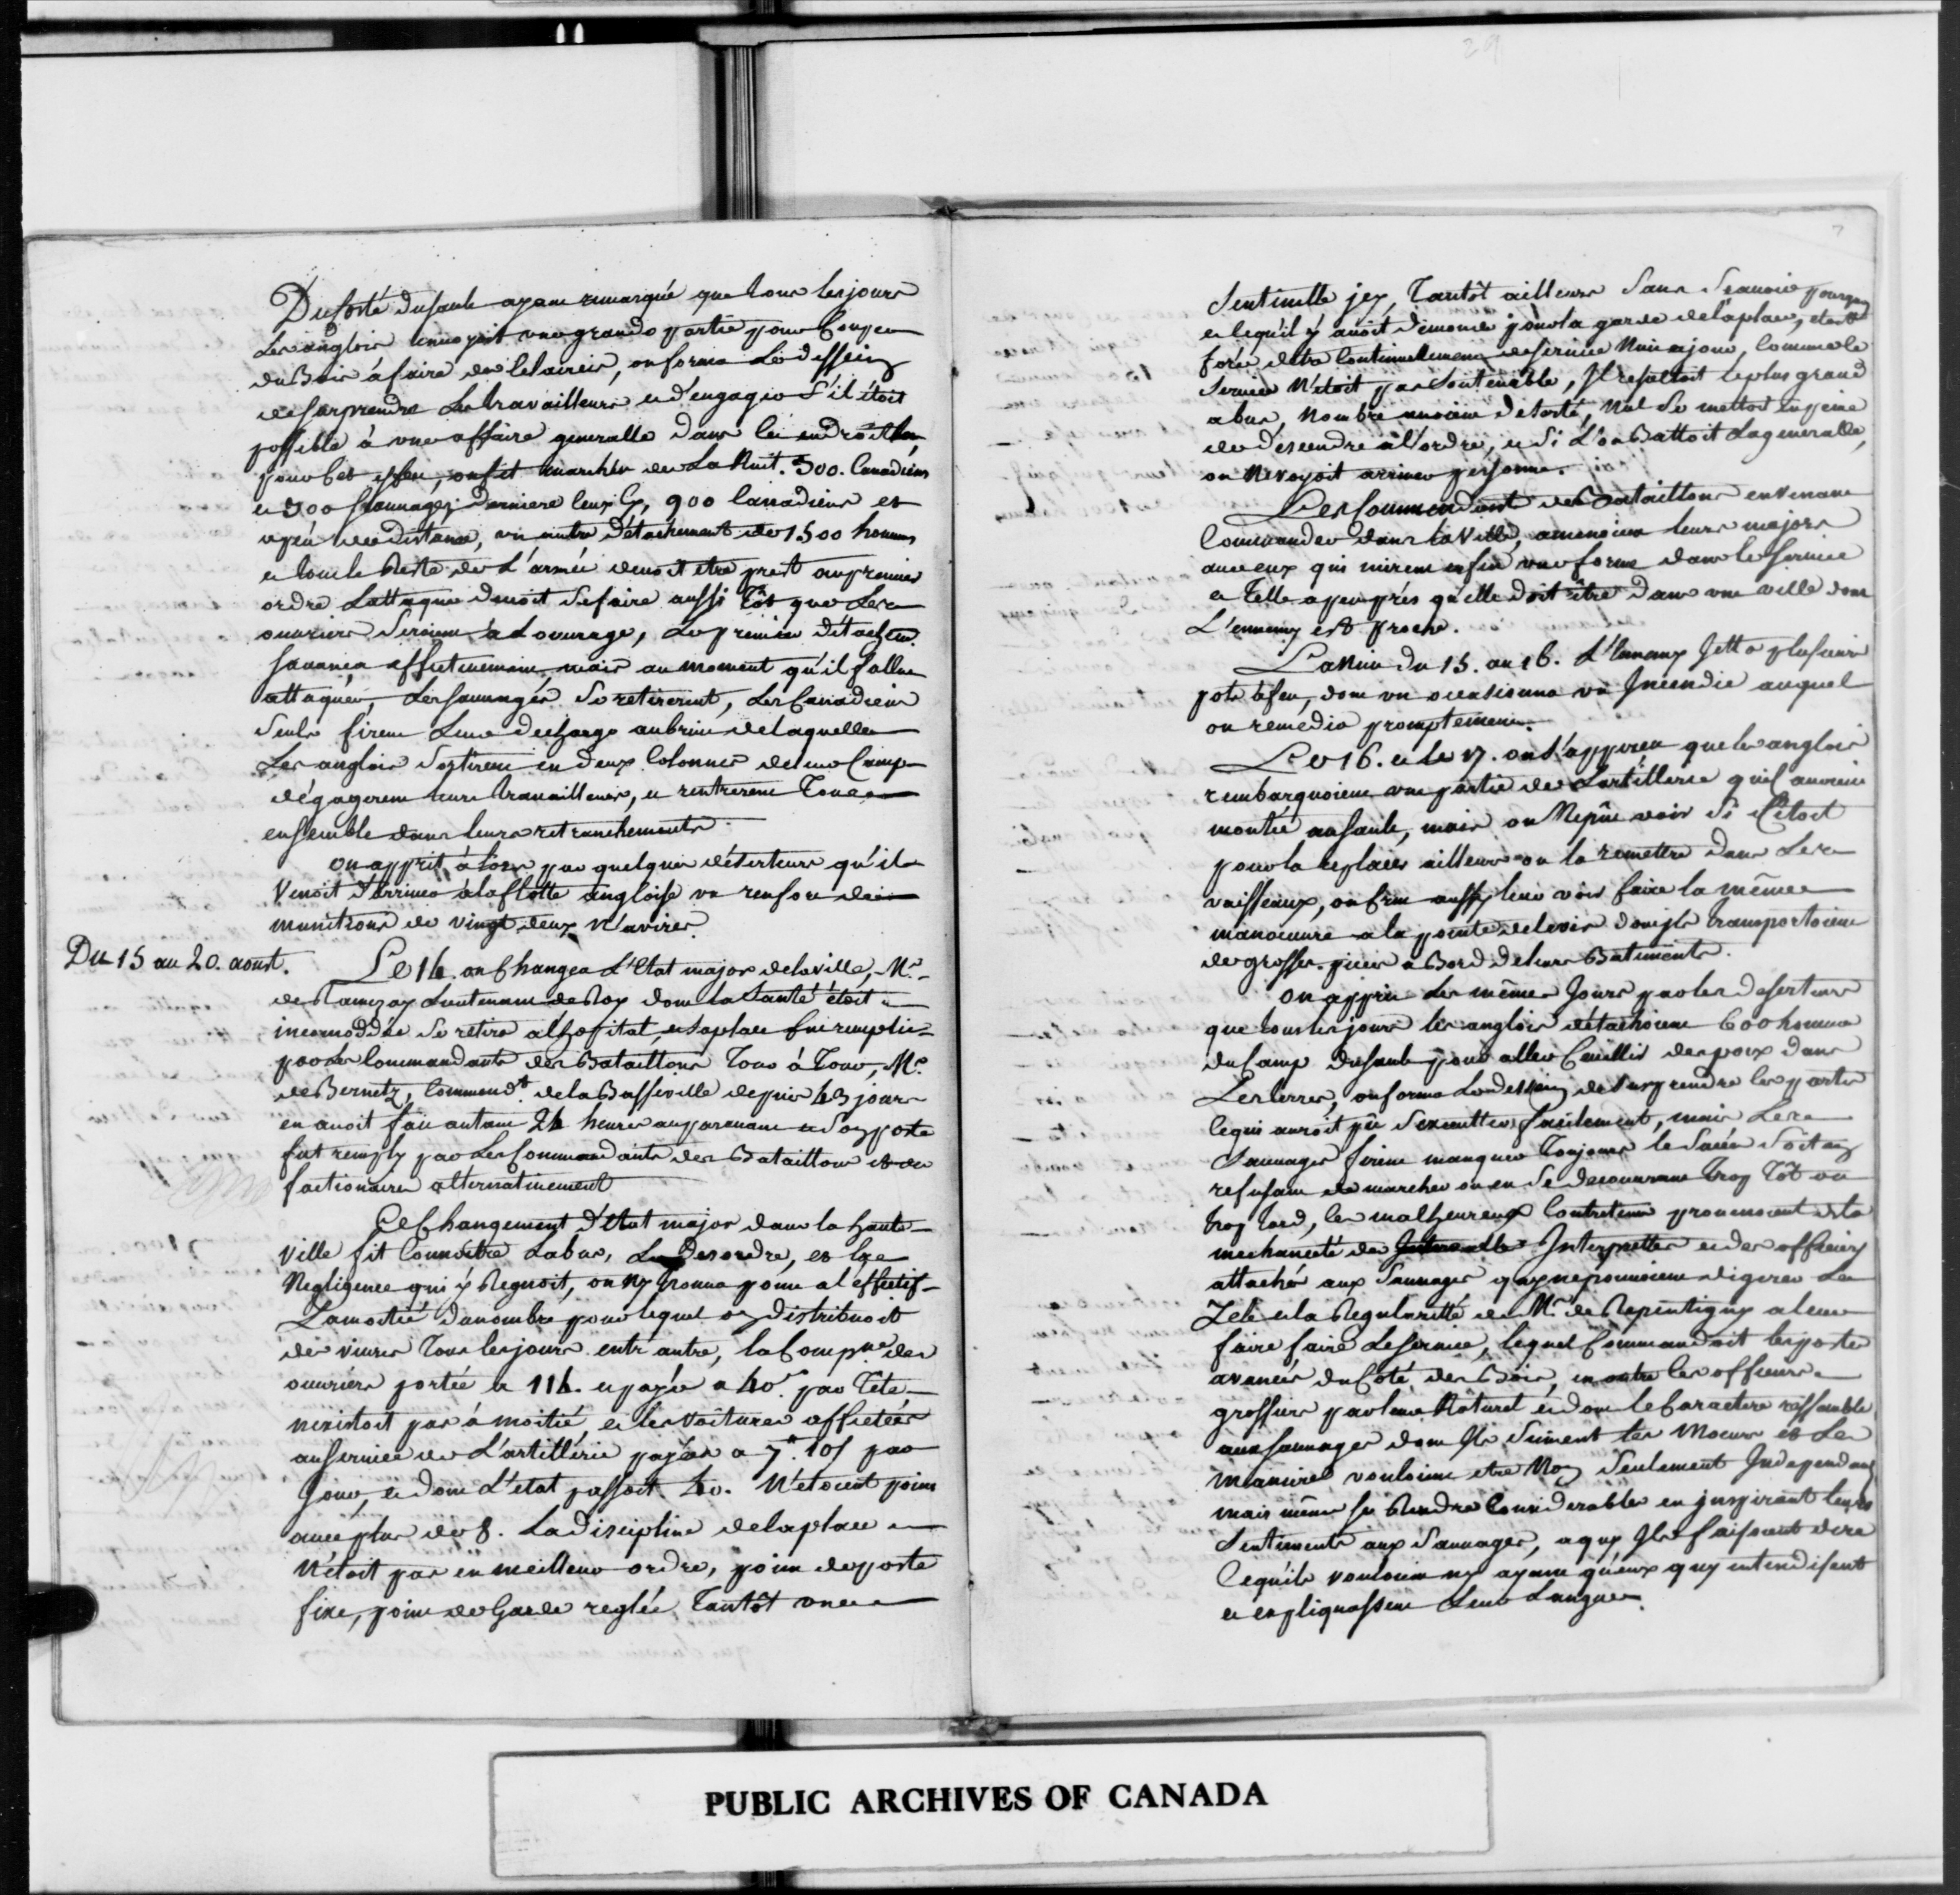 29
7
Du coté du sault ayant remarqué que tous les jours
Les anglois envoyoit une grande partie pour Couper
du Bois à faire des Clairiers, on forma Le dessein
de surprendre Les travailleurs et d'engager S'il étoit
possible à une affaire generalle dans cet endroit là,
pour Cet effect, on fit marcher de La Nuit. 500. Canadiens
et 500 sauvages, derriere Ceux Cy, 900 Canadiens et
a peu de distance, un autre détachement de 1500 hommes
et tout le Reste de L'armée devoit etre prest au premier
ordre Lattaque devoit se faire aussi Tôt que Les
ouvriers Seroient a Louvrage, Le premier détachem.t
savança effectivement, mais au moment qu'il fallut
attaquer, Les sauvages Se retirerent, Les Canadiens
Seuls firent Leur decharge au bruit de laquelle
Les anglois Sortirent en deux Colonnes de leur Camp
dégagerent leurs travailleurs, et rentrerent Tous
ensemble dans leurs retranchements.
On apprit à lors par quelques déserteurs qu'il
Venoit d'arriver a la flotte angloise un renfort de
munitions de vingt deux N'avires.
Du 15 au 20. aoust.
Le 14 on Changea L'Etat major de la ville, Mr.
de Ramezay Lieutenant de Roy dont la Santé étoit
incomoddée Se retira a l'hopital, et sa place fut remplie
par les Commandants des Bataillons Tour à Tour, Mr.
de Bernetz, Commend.t de la Basseville depuis 43 jours
en avoit fait autant 24 heures auparavant et Son poste
fut remply par Les Commandants des Bataillons et de
factionaires alternativement
Ce Changement d'Etat major dans la haute
Ville fit Connoitre Labus, Le Desordre, et La
Negligence qui y Regnoit, on Ny trouva point a l'effectif
La moitié du nombre pour lequel on distribuoit
des vivres Tous les jours entr'autre, la Comp.nie des
ouvriers portée a 114. et payée a 40s. par Tete
nexistoit par à moitié et les voitures affectées
au service de L'artillerie payées a 7tt. 10s par
Jour, et dont L'etat passoit 40. N'etoient point
avec plus de 8. La discipline de la place
N'etoit pas en meilleur ordre, point de poste
fixe, point de Garde reglée, Tantôt une
Sentinelle icy, Tantôt ailleurs Sans Scavoir pourquoy
et ce qu'il y avoit de monde pour la garde de la place, etoit
forcé detre Continuellement de service Nuit et jour, Comme le
Service N'etoit pas Soutenable, Il resultoit le plus grand
abus, Nombre ancien desorté, Nul Se mettoit en peine
de descendre à l'ordre, et Si L'on Battoit La generalle,
on Ne voyoit arriver personne.
Les Commendants des Bataillons en Venant
Commander dans la Ville, amenoient leurs majors
avec eux qui mirent enfin une forme dans le service
et Telle apeuprés qu'elle doit être dans une ville dont
L'ennemy est proche.
La Nuit du 15. au 16. L'Ennemy jetta plusieurs
pots à feu, dont un occasionna un Incendie auquel
on remédia promptement.
Le 16. et le 17. on s'apperçu que les anglois
rembarquoient une partie de Lartillerie qu'ils avoient
montée au sault, mais on Ne pût voir Si C'étoit
pour la replacer ailleurs ou la remettre dans Les
vaisseaux, on Crut aussy leur voir faire la même
manoeuvre a la pointe de levis d'ou ils transportoient
de grosses pieces a Bord de leurs Batiments.
On apprit Les mêmes Jours par les deserteurs
que tous les jours les anglois détachoient 600 hommes
du Camp du sault pour aller Ceuillir des poix dans
Les terres, on forma Le dessein de Surprendre Ces partis
Ce qui auroit pû S'executter facilement, mais Les
Sauvages firent manquer Toujours le Succés Soit en
refusant de marcher ou en Se decouvrant trop Tôt ou
trop tard, Ces malheureux Contretems provenoient de la
mechanceté des Interpretter et des officiers
attachés aux Sauvages qui ne pouvoient digerer Le
Zele et la Regularitté de Mr. de Repentigny a leur
faire faire Le service, lequel Commandoit les postes
avancés du Coté des Bois, en outre les officiers
grossiers par leur Naturel et dont le Caractere ressemble
aux sauvages dont Ils Suivent les Moeurs et Les
Manieres vouloient etre Non Seulement Independans
mais même se Rendre Considerables en inspirant leurs
Sentiments aux Sauvages, a qui Ils faisoient dire
Ce qu'ils vouloient ny ayant qu'eux qui entendisent
et expliquassent Leur Langue.
PUBLIC ARCHIVES OF CANADA